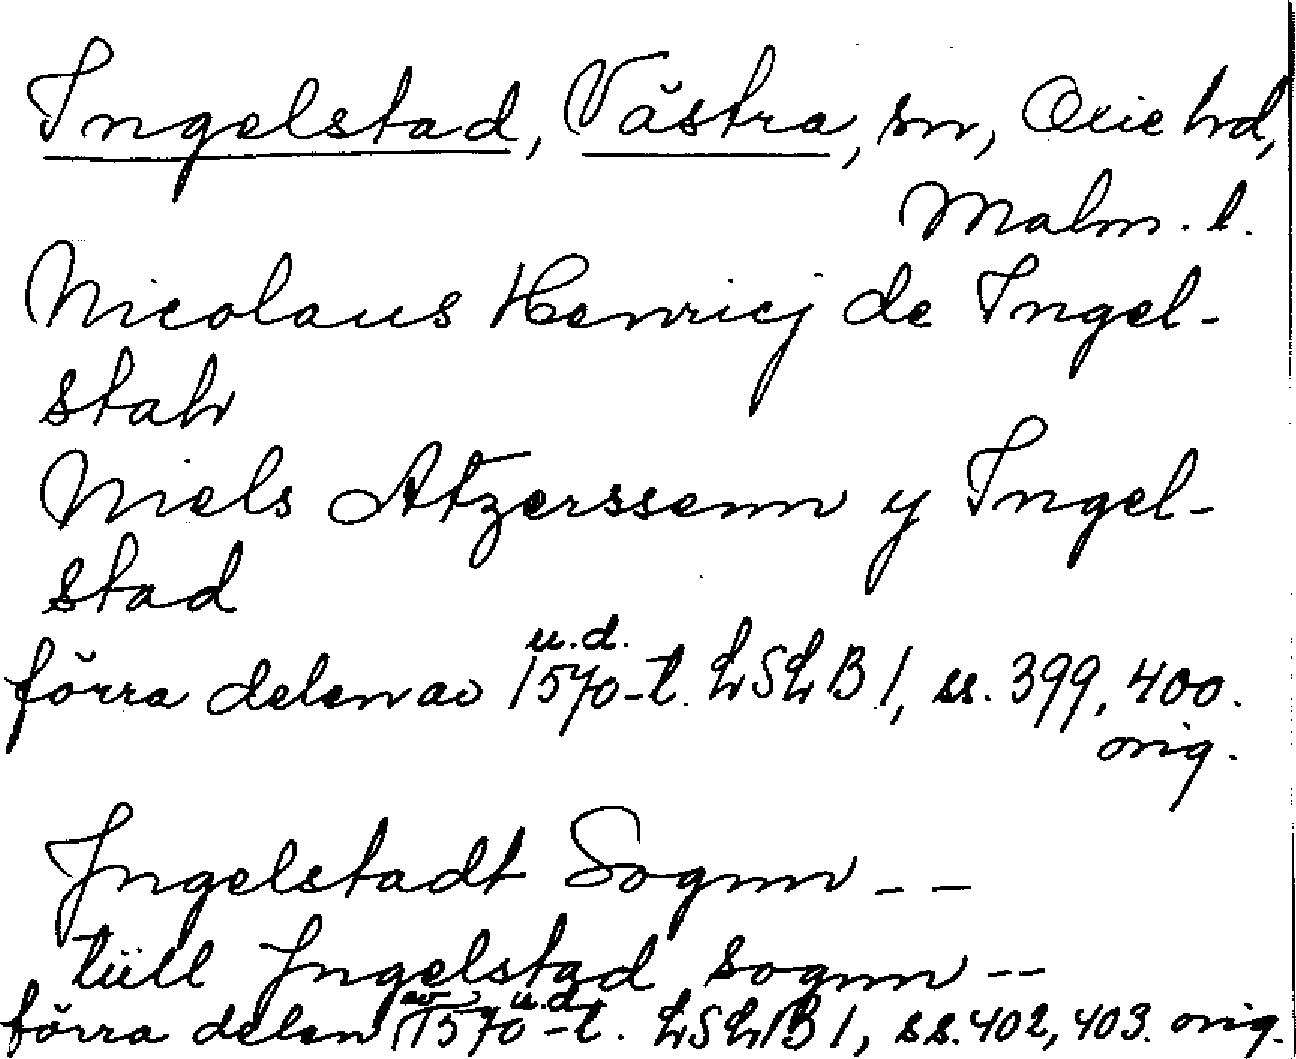 Ingelstad, Västra, sn, Oxie hd,
Malm. l.
Nicolaus Henricj de Ingel-
stah
Niels Atzerssenn y Ingel-
stad
u.d.
förra delen av 1570-t. LSLB 1, ss. 399, 400.
orig.
Jngelstadt Sognn - -
tüll Jngelstad sognn --
av u.d.
förra delen 1570-t. LSLB 1, s.s. 402, 403. orig.